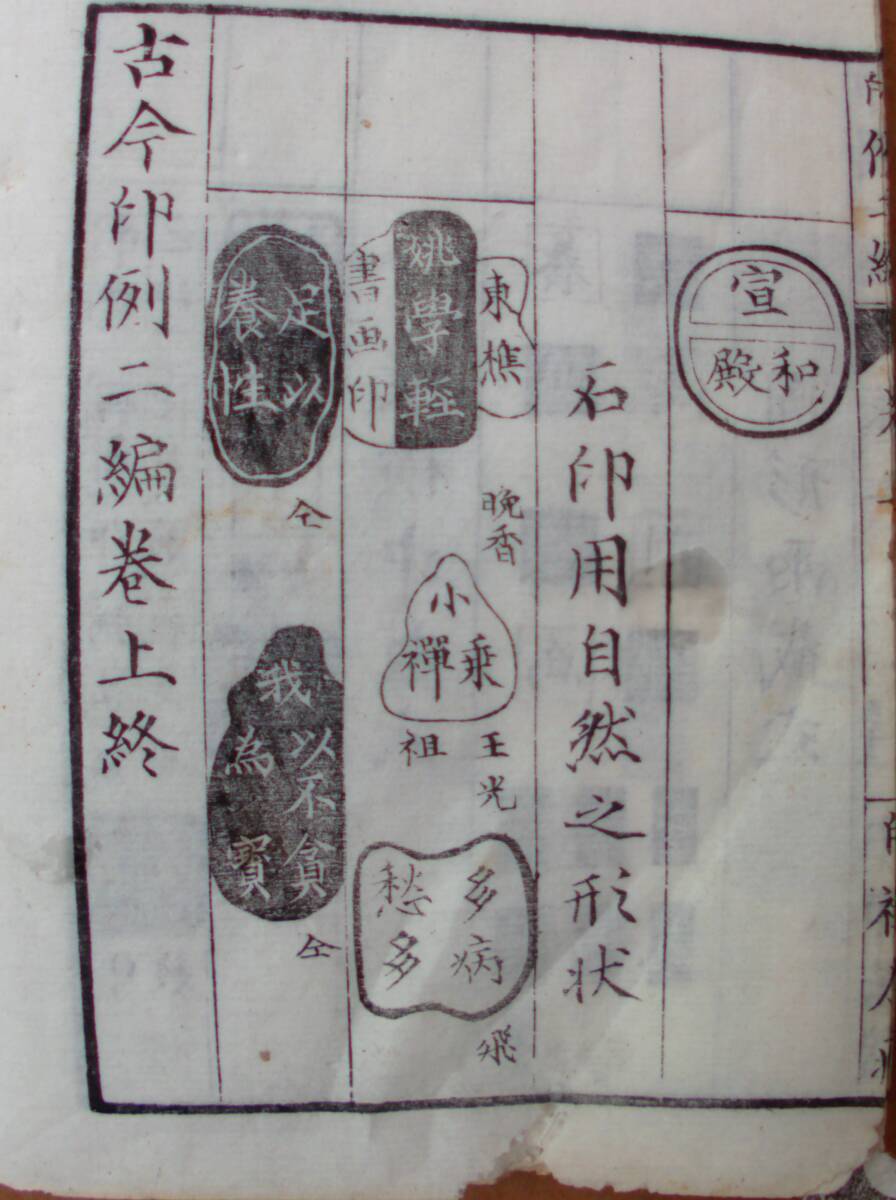 宣
和殿
石印用自然之形状
東樵
姚學輕
書画印
晩香
小
乗禪
王光
祖
多病
多愁
飛
足以
養性
仝
我
以不貪
為寳
仝
古今印例二編巻上終